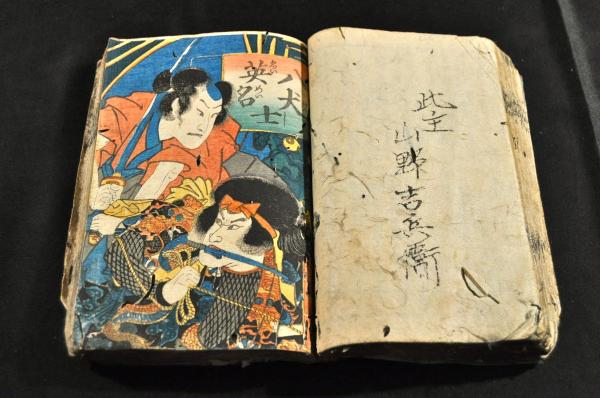 八犬士
英名
此主
山野吉兵衛